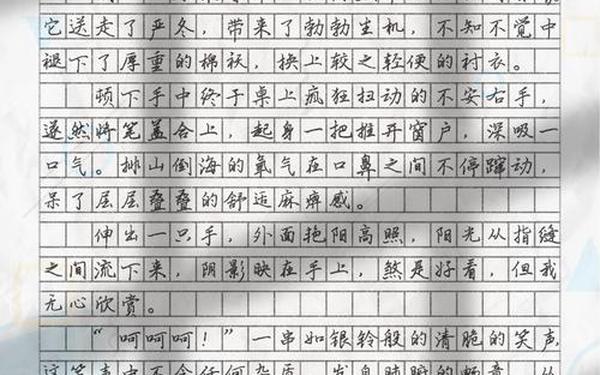 它送走了严冬，带来了勃勃生机，不知不觉中
褪下了厚重的棉袄，换上较之轻便的衬衣。
顿下手中终于桌上疯狂扫动的不安右手，
遂然将笔盖合上，起身一把推开窗户，深吸一
口气。排山倒海的氧气在口鼻之间不停蹿动，
呆了层层叠叠的舒适麻痹感。
伸出一只手，外面艳阳高照，阳光从指缝
之间流下来，阴影映在手上，煞是好看，但我
无心欣赏。
“呵呵呵！”一串如银铃般的清脆的笑声
这笑声中不含任何杂质，发自肺腑的畅意，从